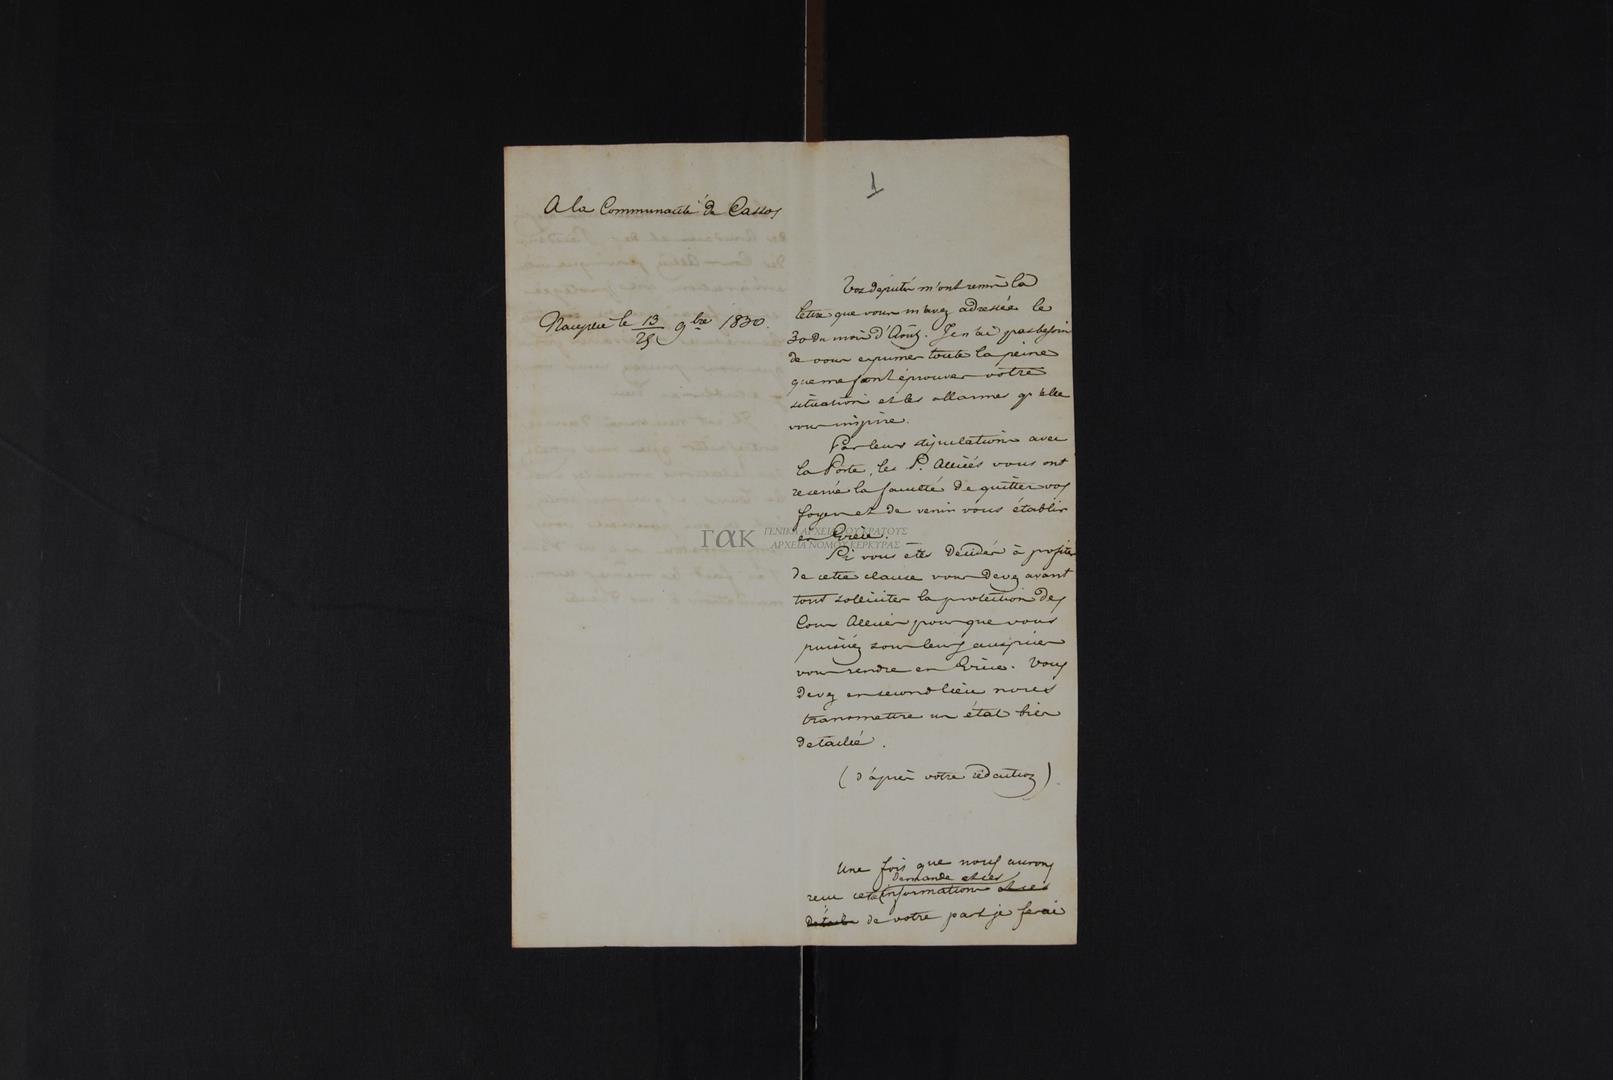 1
A la Communauté de Cassos
Nauplie le 13/25 9bre 1830.
Vos députés m'ont remis la
lettre que vous m'avez adressée le
30 du mois d'Août. Je n'ai pas besoin
de vous exprimer toute la peine
que me font éprouver votre
situation et les allarmes qu'elle
vous inspire.
Par leurs stipulations avec
la Porte, les P. Alliées vous ont
reservé la faculté de quitter vos
foyers et de venir vous établir
en Grèce.
Si vous êtes decidés à profiter
de cette clause vous devez avant
tout solliciter la protection des
Cours Alliées pour que vous
puissiez sous leurs auspices
vous rendre en Grèce. Vous
devez en second lieu nous
transmettre un état bien
detaillé.
(d'après votre rédaction)
Une fois que nous aurons
demande et ces
reçu cette informations et ces
détails de votre part je ferai
ΓαΚ ΓΕΝΙΚΑ ΑΡΧΕΙΑ ΤΟΥ ΚΡΑΤΟΥΣ
ΑΡΧΕΙΑ ΝΟΜΟΥ ΚΕΡΚΥΡΑΣ